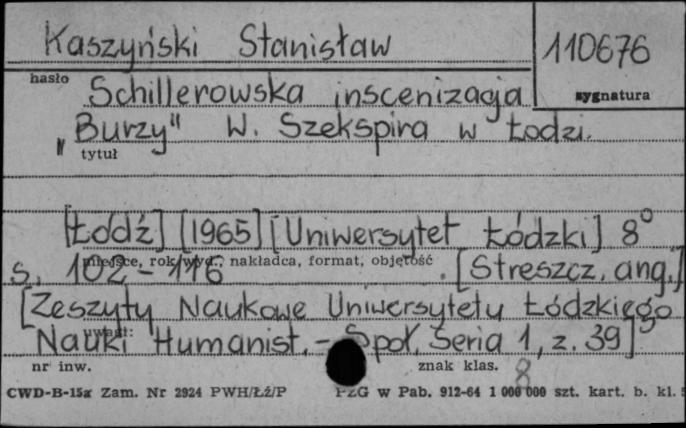 Kaszyński Stanisław
110676
hasło
sygnatura
Schillerowska inscenizacja
„Burzy" W. Szekspira w Łodzi.
tytuł
[Łódź] [1965] [Uniwersytet Łódzki] 8°
miejsce, rok wyd., nakładca, format, objętość
s. 102-116. [Streszcz. ang.]
[Zeszyty Naukowe Uniwersytetu Łódzkiego
uwagi:
Nauki Humanist.-Społ. Seria 1, z. 39]
nr inw.
znak klas.
8
CWD-B-15a Zam. Nr 2924 PWH/Łź/P
PZG w Pab. 912-64 1 000 000 szt. kart. b. kl. 5